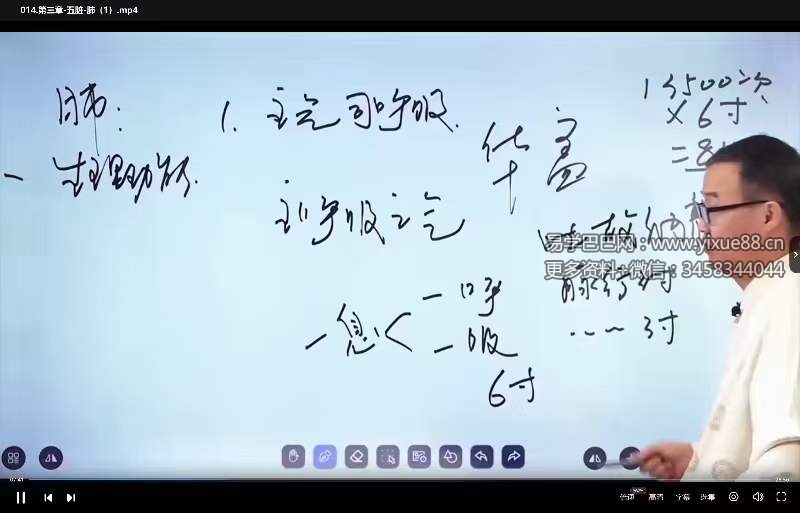 014.第三章-五脏-肺（1）.mp4
肺:
1. 主气司呼吸.
华盖
13500次
×6寸
一 生理功能.
主呼吸之气
易学巴巴网：www.yixue88.cn
更多资料+微信：3458344044
脉行3寸
一息< 一呼
一吸
3寸
6寸
倍速
高清
字幕
选集